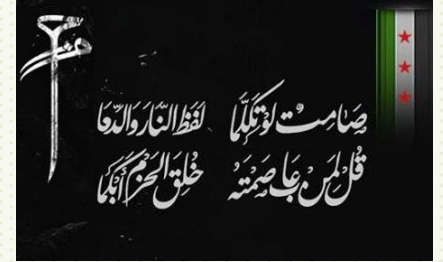 صَامِتٌ لَوْ تَكَلَّمَا لَفَظَ النَّارَ وَالدِّمَا
قُلْ لِمَنْ عَابَ صَمْتَهُ خُلِقَ الحَزْمُ أَبْكَمَا